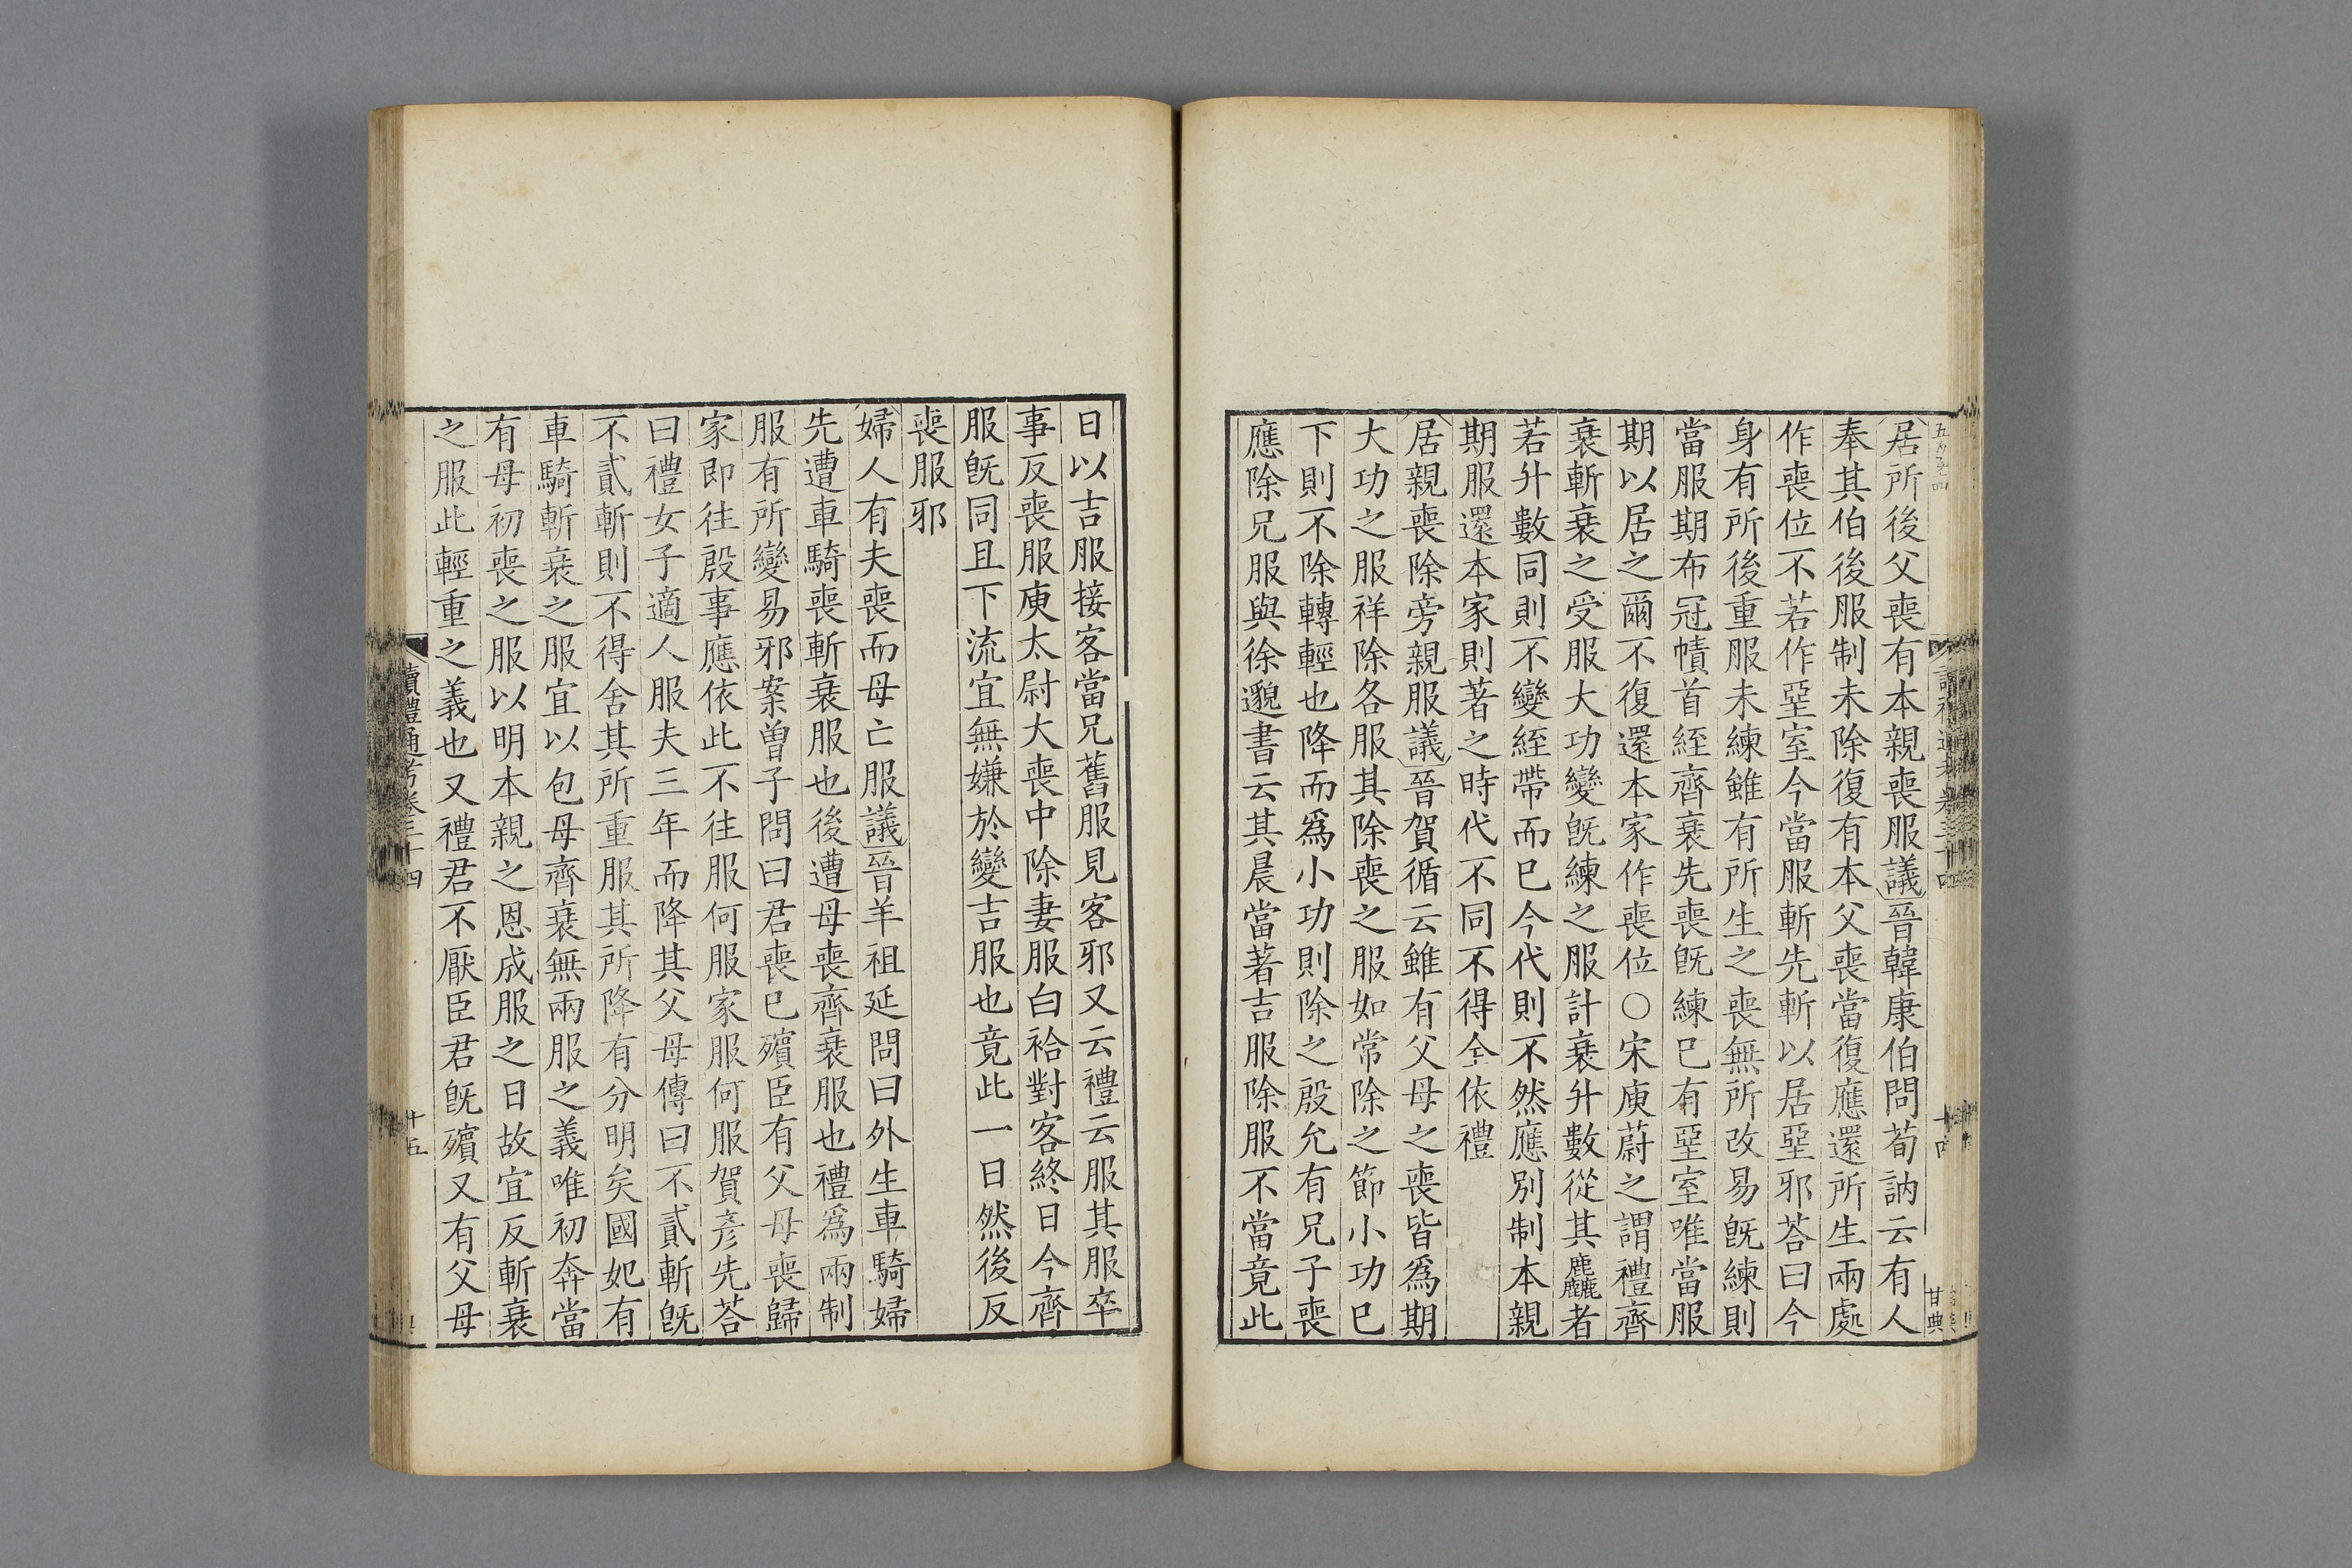 居所後父喪有本親喪服議晉韓康伯問荀訥云有人
奉其伯後服制未除復有本父喪當復應還所生兩處
作喪位不若作堊室今當服斬先斬以居堊邪荅曰今
身有所後重服未練雖有所生之喪無所改易旣練則
當服期布冠幘首絰齊衰先喪旣練已有堊室唯當服
期以居之爾不復還本家作喪位○宋庾蔚之謂禮齊
衰斬衰之受服大功變旣練之服計衰升數從其麤者
若升數同則不變絰帶而已今代則不然應別制本親
期服還本家則著之時代不同不得全依禮
居親喪除旁親服議晉賀循云雖有父母之喪皆爲期
大功之服祥除各服其除喪之服如常除之節小功已
下則不除轉輕也降而爲小功則除之殷允有兄子喪
應除兄服與徐邈書云其晨當著吉服除服不當竟此
日以吉服接客當兄舊服見客邪又云禮云服其服卒
事反喪服庾太尉大喪中除妻服白袷對客終日今齊
服旣同且下流宜無嫌於變吉服也竟此一日然後反
喪服邪
婦人有夫喪而母亡服議晉羊祖延問曰外生車騎婦
先遭車騎喪斬衰服也後遭母喪齊衰服也禮爲兩制
服有所變易邪案曾子問曰君喪已殯臣有父母喪歸
家即往殷事應依此不往服何服家服何服賀彥先荅
曰禮女子適人服夫三年而降其父母傳曰不貳斬旣
不貳斬則不得舍其所重服其所降有分明矣國妃有
車騎斬衰之服宜以包母齊衰無兩服之義唯初奔當
有母初喪之服以明本親之恩成服之日故宜反斬衰
之服此輕重之義也又禮君不厭臣君旣殯又有父母
讀禮通考卷三十四
十五
十四
甘典